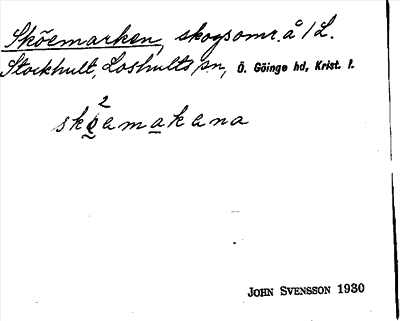 Sköemarken, skogsomr. å 1/L.
Stockhult, Loshults sn, Ö. Göinge hd, Krist. l.
2
skøamakana
JOHN SVENSSON 1930